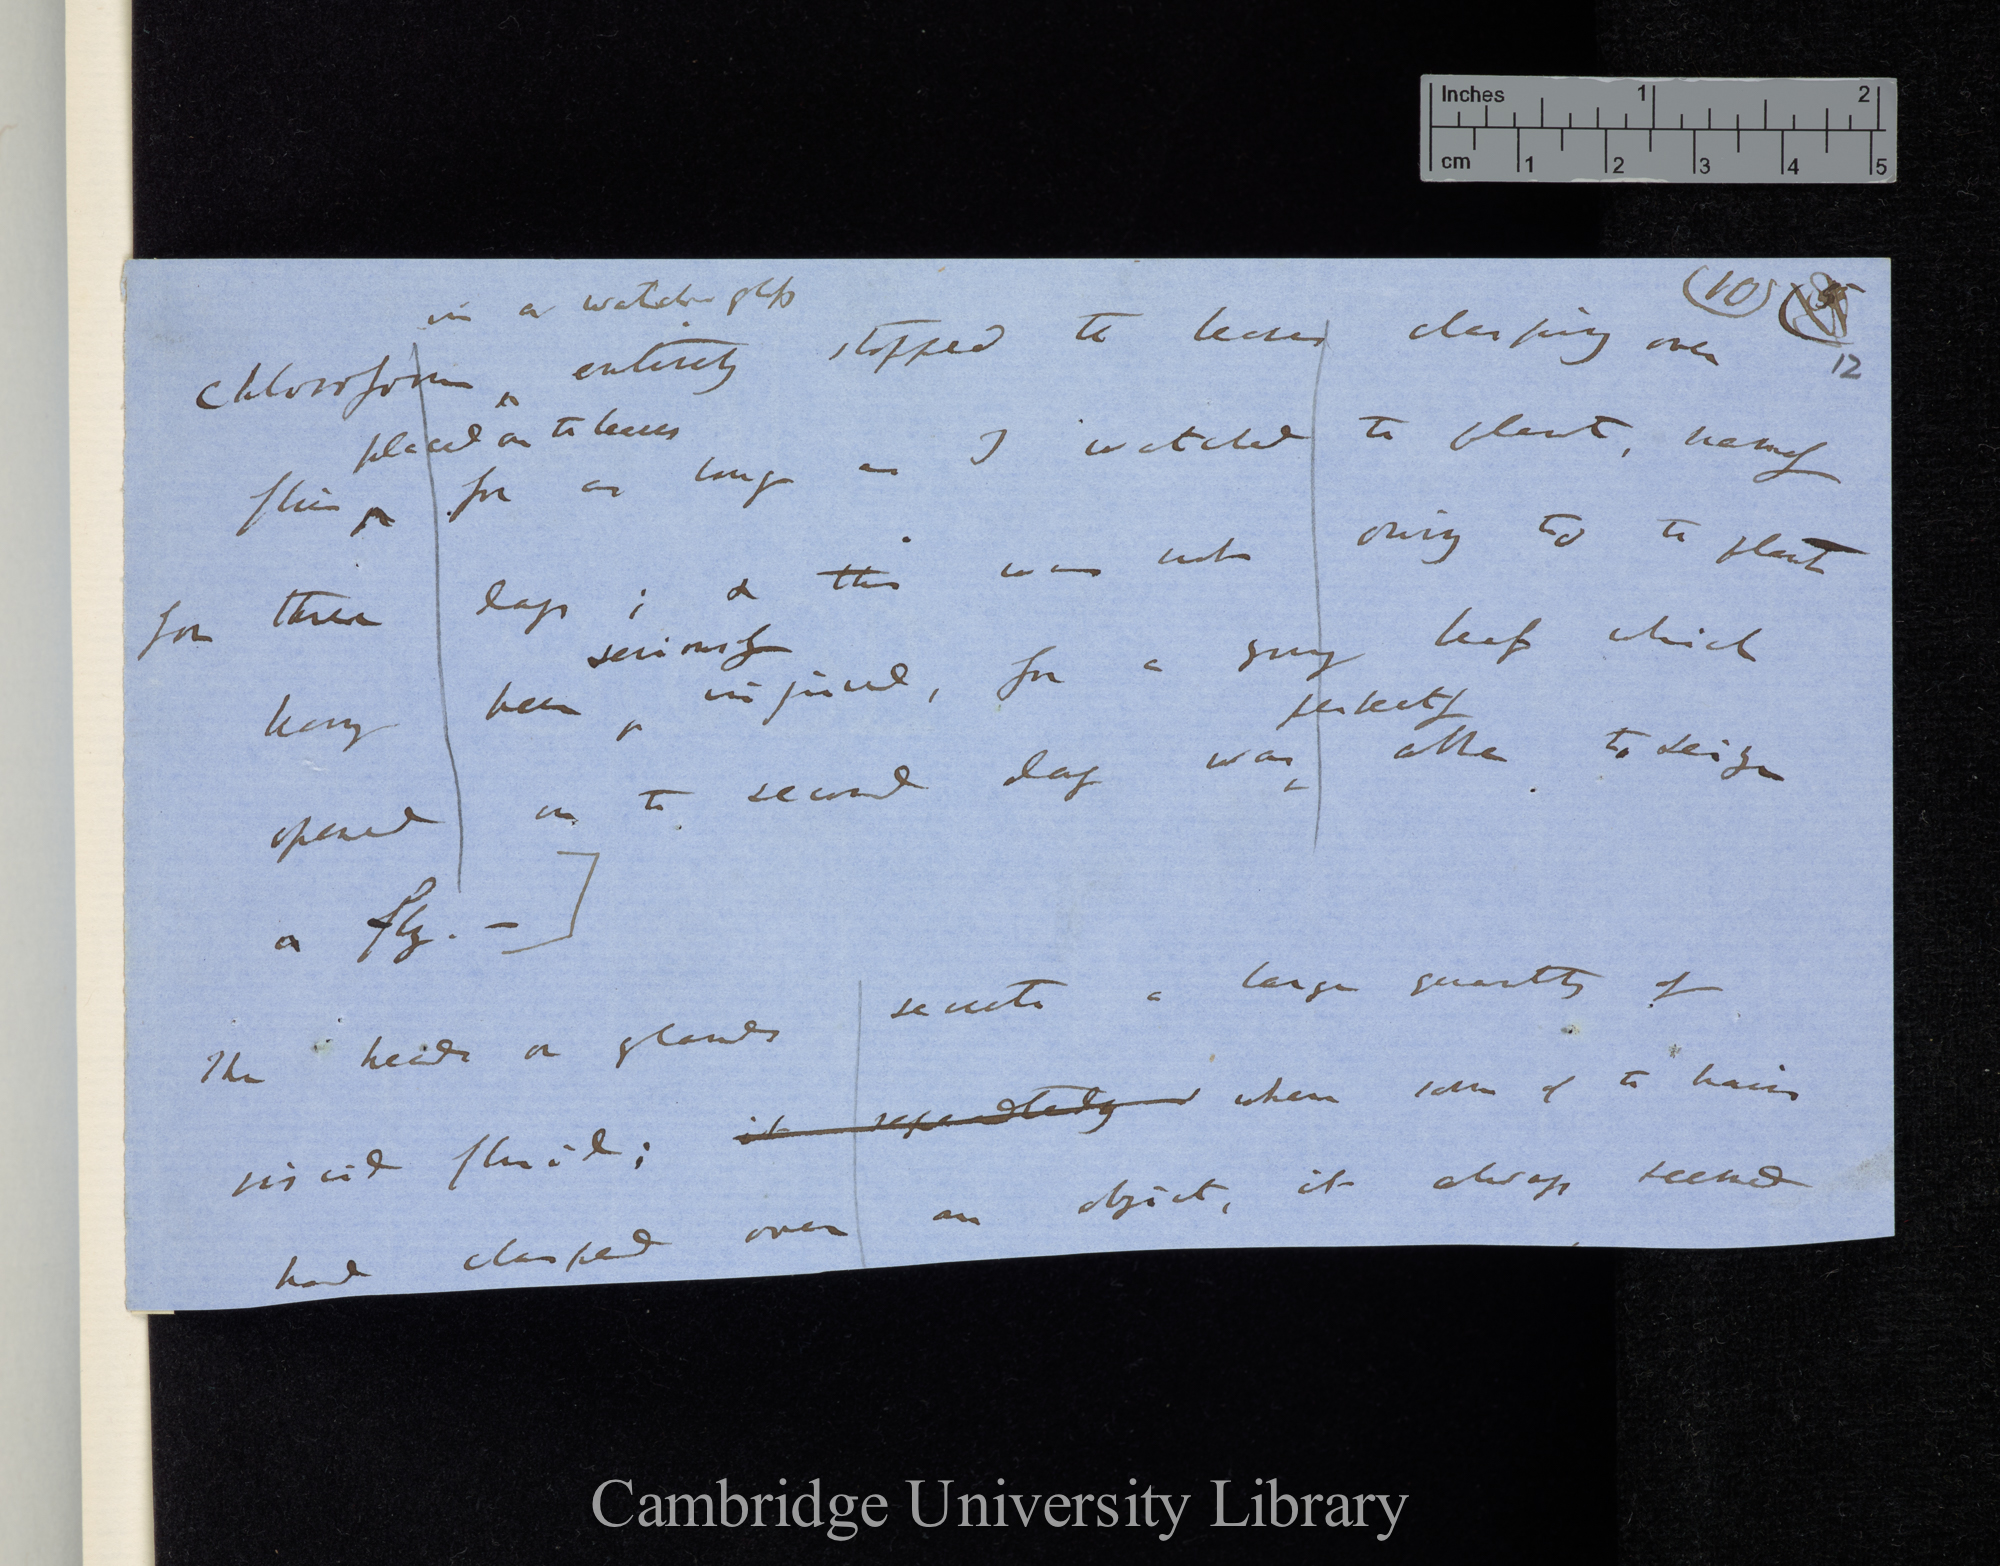 Inches 1 2
cm 1 2 3 4 5
(10)
12
in a watch-glass
Chloroform ^ entirely stopped the leaves clasping over
placed on the leaves
flies ^ for as long as I watched the plant, namely
for three days; & this was not owing to the plant
seriously
having been ^ injured, for a young leaf which
perfectly
opened on the second day was ^ able to seize
a fly. —]
The heads or glands secrete a large quantity of
viscid fluid; it repeatedly when some of the hairs
had clasped over an object, it always seemed
Cambridge University Library